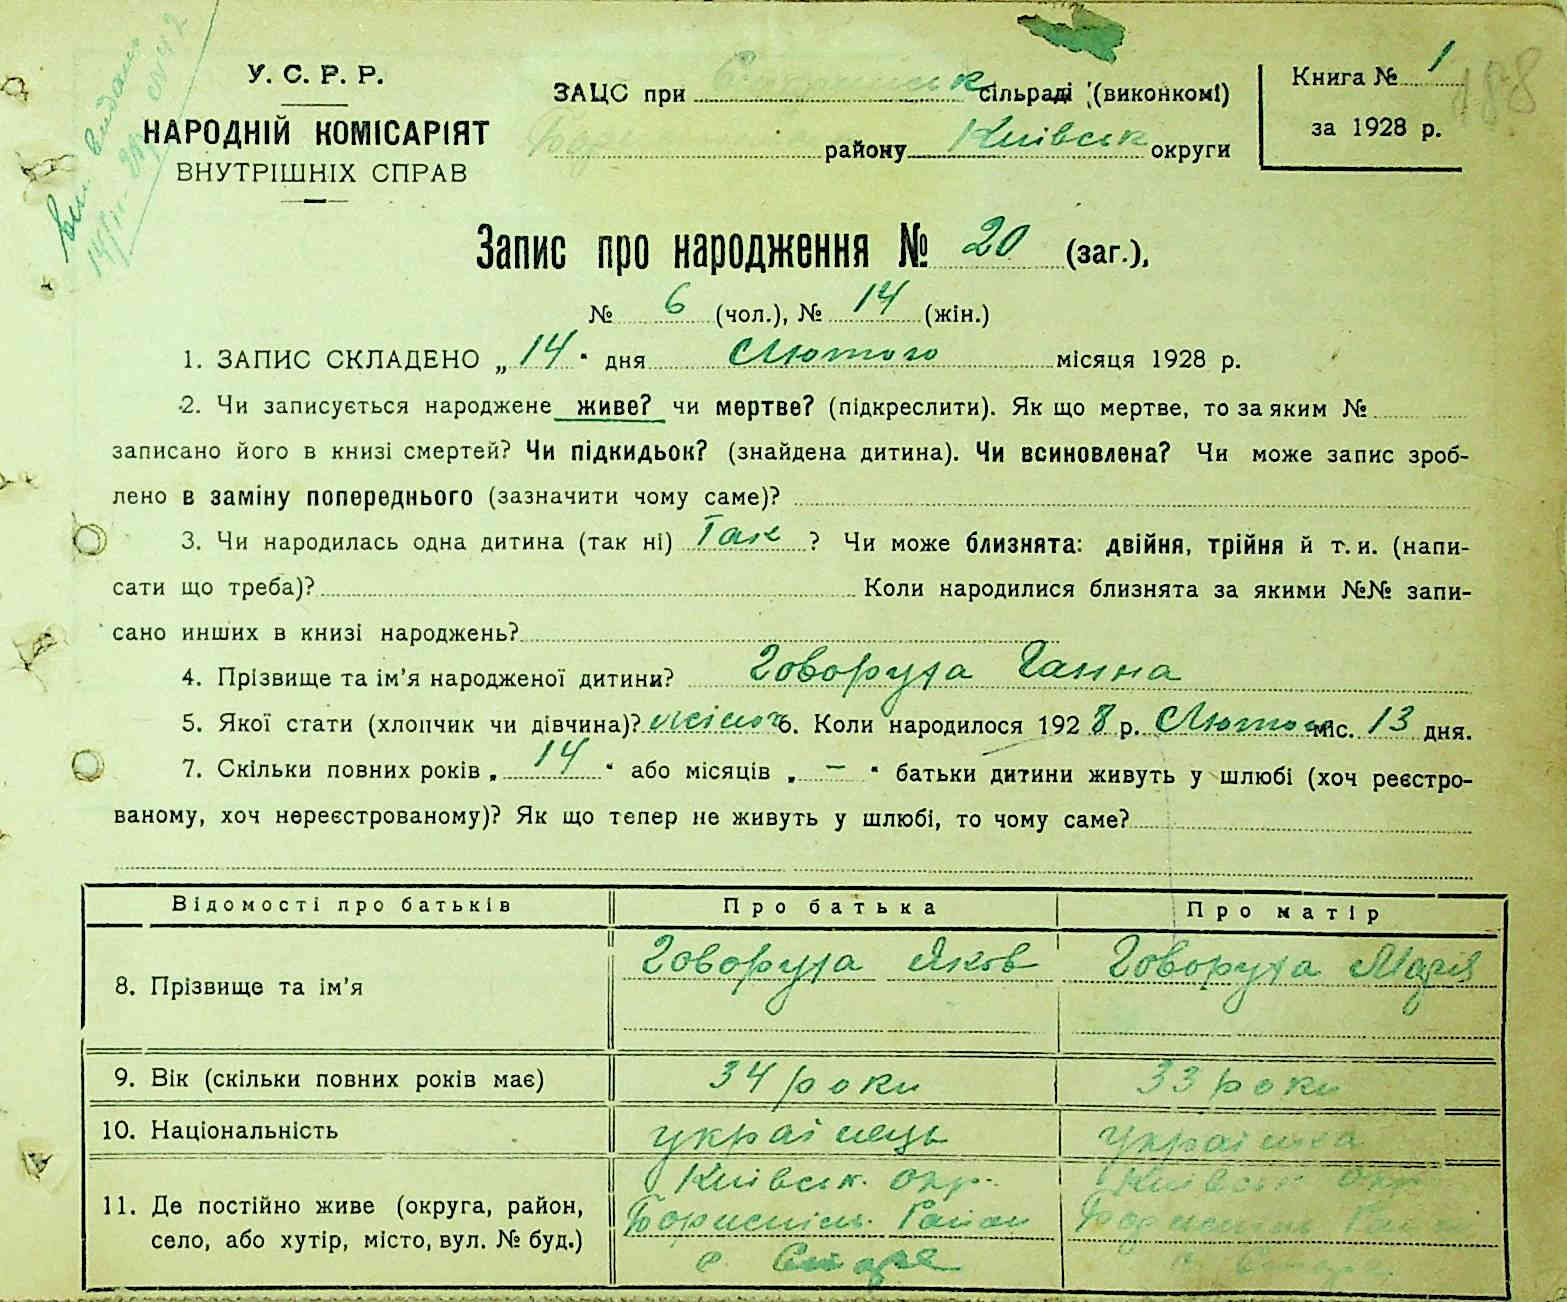 У. С. Р. Р.
НАРОДНІЙ КОМІСАРІЯТ
ВНУТРІШНІХ СПРАВ
ЗАЦС при сільраді (виконкомі)
району Київськ округи
Книга № 1
за 1928 р.
188
Запис про народження № 20 (заг.),
№ 6 (чол.), № 14 (жін.)
1. ЗАПИС СКЛАДЕНО „ 14 “ дня Лютого місяця 1928 р.
2. Чи записується народжене живе? чи мертве? (підкреслити). Як що мертве, то за яким №
записано його в книзі смертей? Чи підкидьок? (знайдена дитина). Чи всиновлена? Чи може запис зроб-
лено в заміну попереднього (зазначити чому саме)?
3. Чи народилась одна дитина (так ні) Так ? Чи може близнята: двійня, трійня й т. и. (напи-
сати що треба)? Коли народилися близнята за якими №№ запи-
сано инших в книзі народжень?
4. Прізвище та ім’я народженої дитини? Говоруха Ганна
5. Якої стати (хлопчик чи дівчина)? жіноч 6. Коли народилося 1928 р. Лютого міс. 13 дня.
7. Скільки повних років „ 14 “ або місяців „ — “ батьки дитини живуть у шлюбі (хоч реєстро-
ваному, хоч нереєстрованому)? Як що тепер не живуть у шлюбі, то чому саме?
Відомості про батьків Про батька Про матір
8. Прізвище та ім’я Говоруха Яков Говоруха Марія
9. Вік (скільки повних років має) 34 роки 33 роки
10. Національність українець українка
11. Де постійно живе (округа, район,
село, або хутір, місто, вул. № буд.)
Київськ. окр. Київськ окр
Бориспіль. Район Бориспіль Район
с. Старе с. Старе